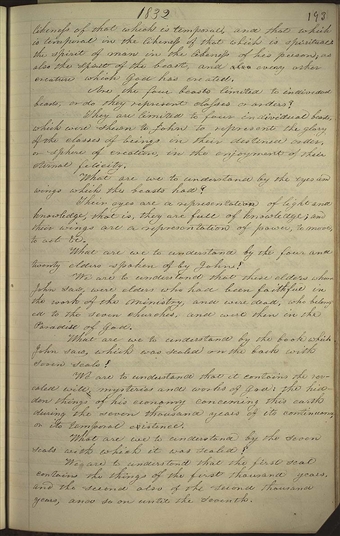 1832
193
likeness of that which is temporal; and that which
is temporal in the likeness of that which is spiritual;
the spirit of man in the likeness of his person, as
also the spirit of the beast, and every other
creature which God has created.
Are the four beasts limited to individual
beasts, or do they represent classes or orders?
They are limited to four individual beasts,
which were shown to John to represent the glory
of the classes of beings in their destined order,
or sphere of creation, in the enjoyment of their
eternal felicity.
What are we to understand by the eyes and
wings which the beasts had?
Their eyes are a representation of light and
knowledge, that is, they are full of knowledge; and
their wings are a representation of power, to move,
to act &c.
What are we to understand by the four and
twenty elders spoken of by John?
We are to understand that these elders whom
John saw, were elders who had been faithful in
the work of the ministry, and were dead, who belong-
ed to the seven churches, and were then in the
Paradise of God.
What are we to understand by the book which
John saw, which was sealed on the back with
seven seals?
We are to understand that it contains the rev-
ealed will, mysteries and works of God; the hid-
den things of his economy concerning this earth
during the seven thousand years of its continuance,
or its temporal existence.
What are we to understand by the seven
seals with which it was sealed?
We are to understand that the first seal
contains the things of the first thousand years,
and the second also of the second thousand
years, and so on until the seventh.